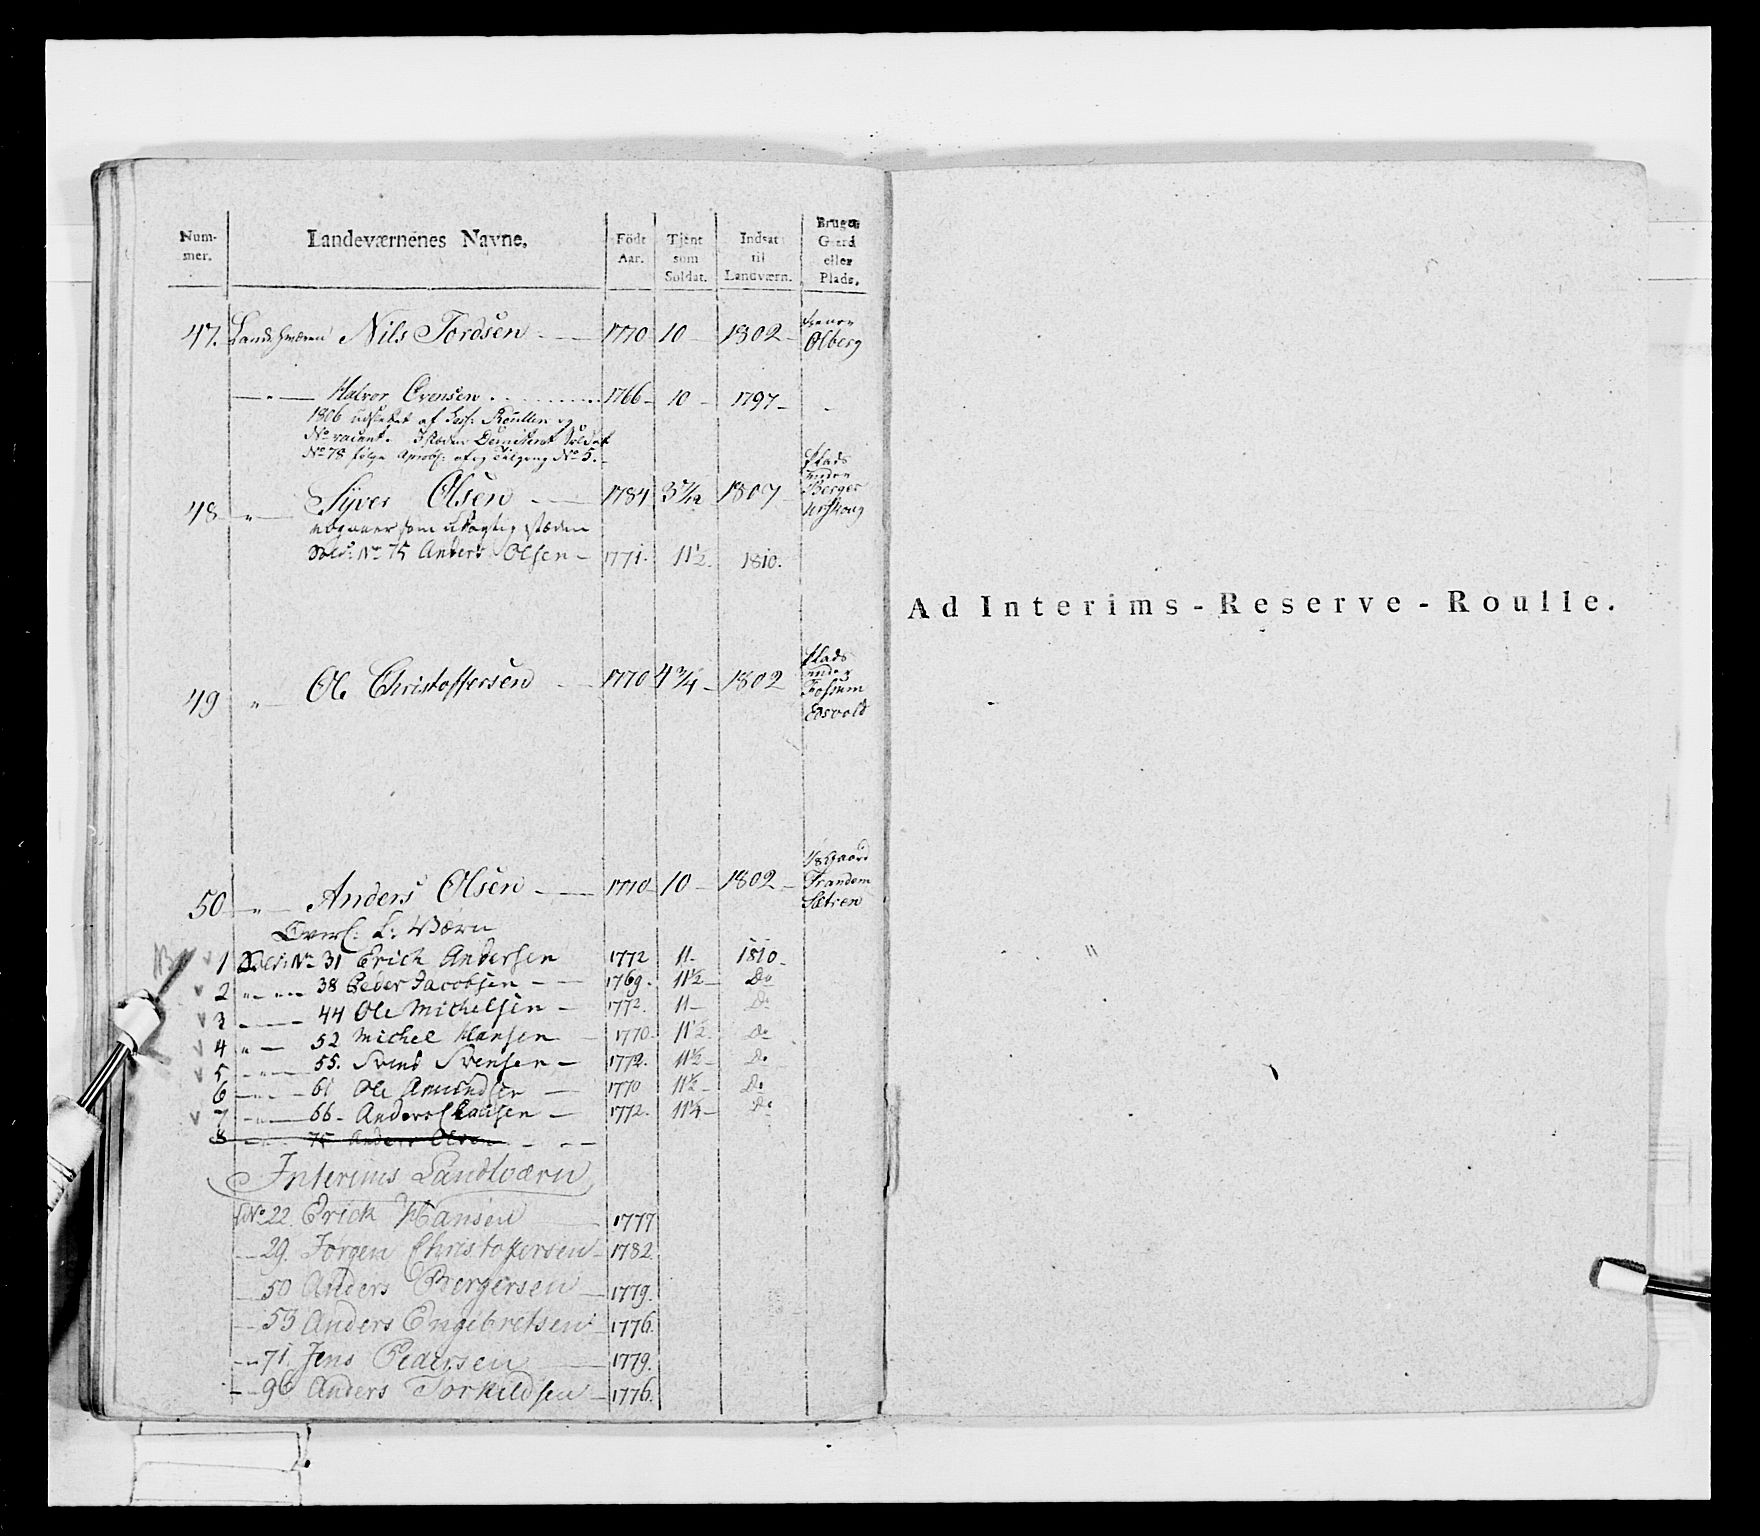 Num- mer. Landeværnenes Navne. Födt Aar. Tjent som Soldat. Indsat til Landværn. Bruger Gaard eller Plads.
47. Nils Tordsen 1770 10 1802 Olberg
Halvor Evensen 1766 10 1797
1806 udslettet af Roullen og
No vacant. Soldat
No 78 No 5.
Plads under Berger
48 Syver Olsen 1784 3 1807
som
Sold: No 75 Anders Olsen 1771. 11½ 1810.
49 Ole Christoffersen 1770 4¾ 1802 Plads under Fossum Edsvold
50 Anders Olsen 1770 10 1802 1/8 Gaard Trandem Sætren
L: Værn
1 Sold: No 31 Erich Andersen 1772 11 1810
2 38 Peder Jacobsen 1769. 11½ Do
3 44 Ole Michelsen 1772. 11 Do
4 52 Michel Hansen 1770 11½ Do
5 55. Svend Svensen 1772. 11½ Do
6 61 Ole Amundsen 1770 11½ Do
7 66 Anders Clausen 1772. 11¼ Do
8 75 Anders Olsen
Interims Landværn
No 22. Erick Hansen 1777
29. Jörgen Christoffersen 1782.
50 Anders Bergersen 1779.
53 Anders Engebretsen 1776.
71. Jens Pedersen 1779.
96 Anders Torkildsen 1776.
Ad Interims-Reserve-Roulle.